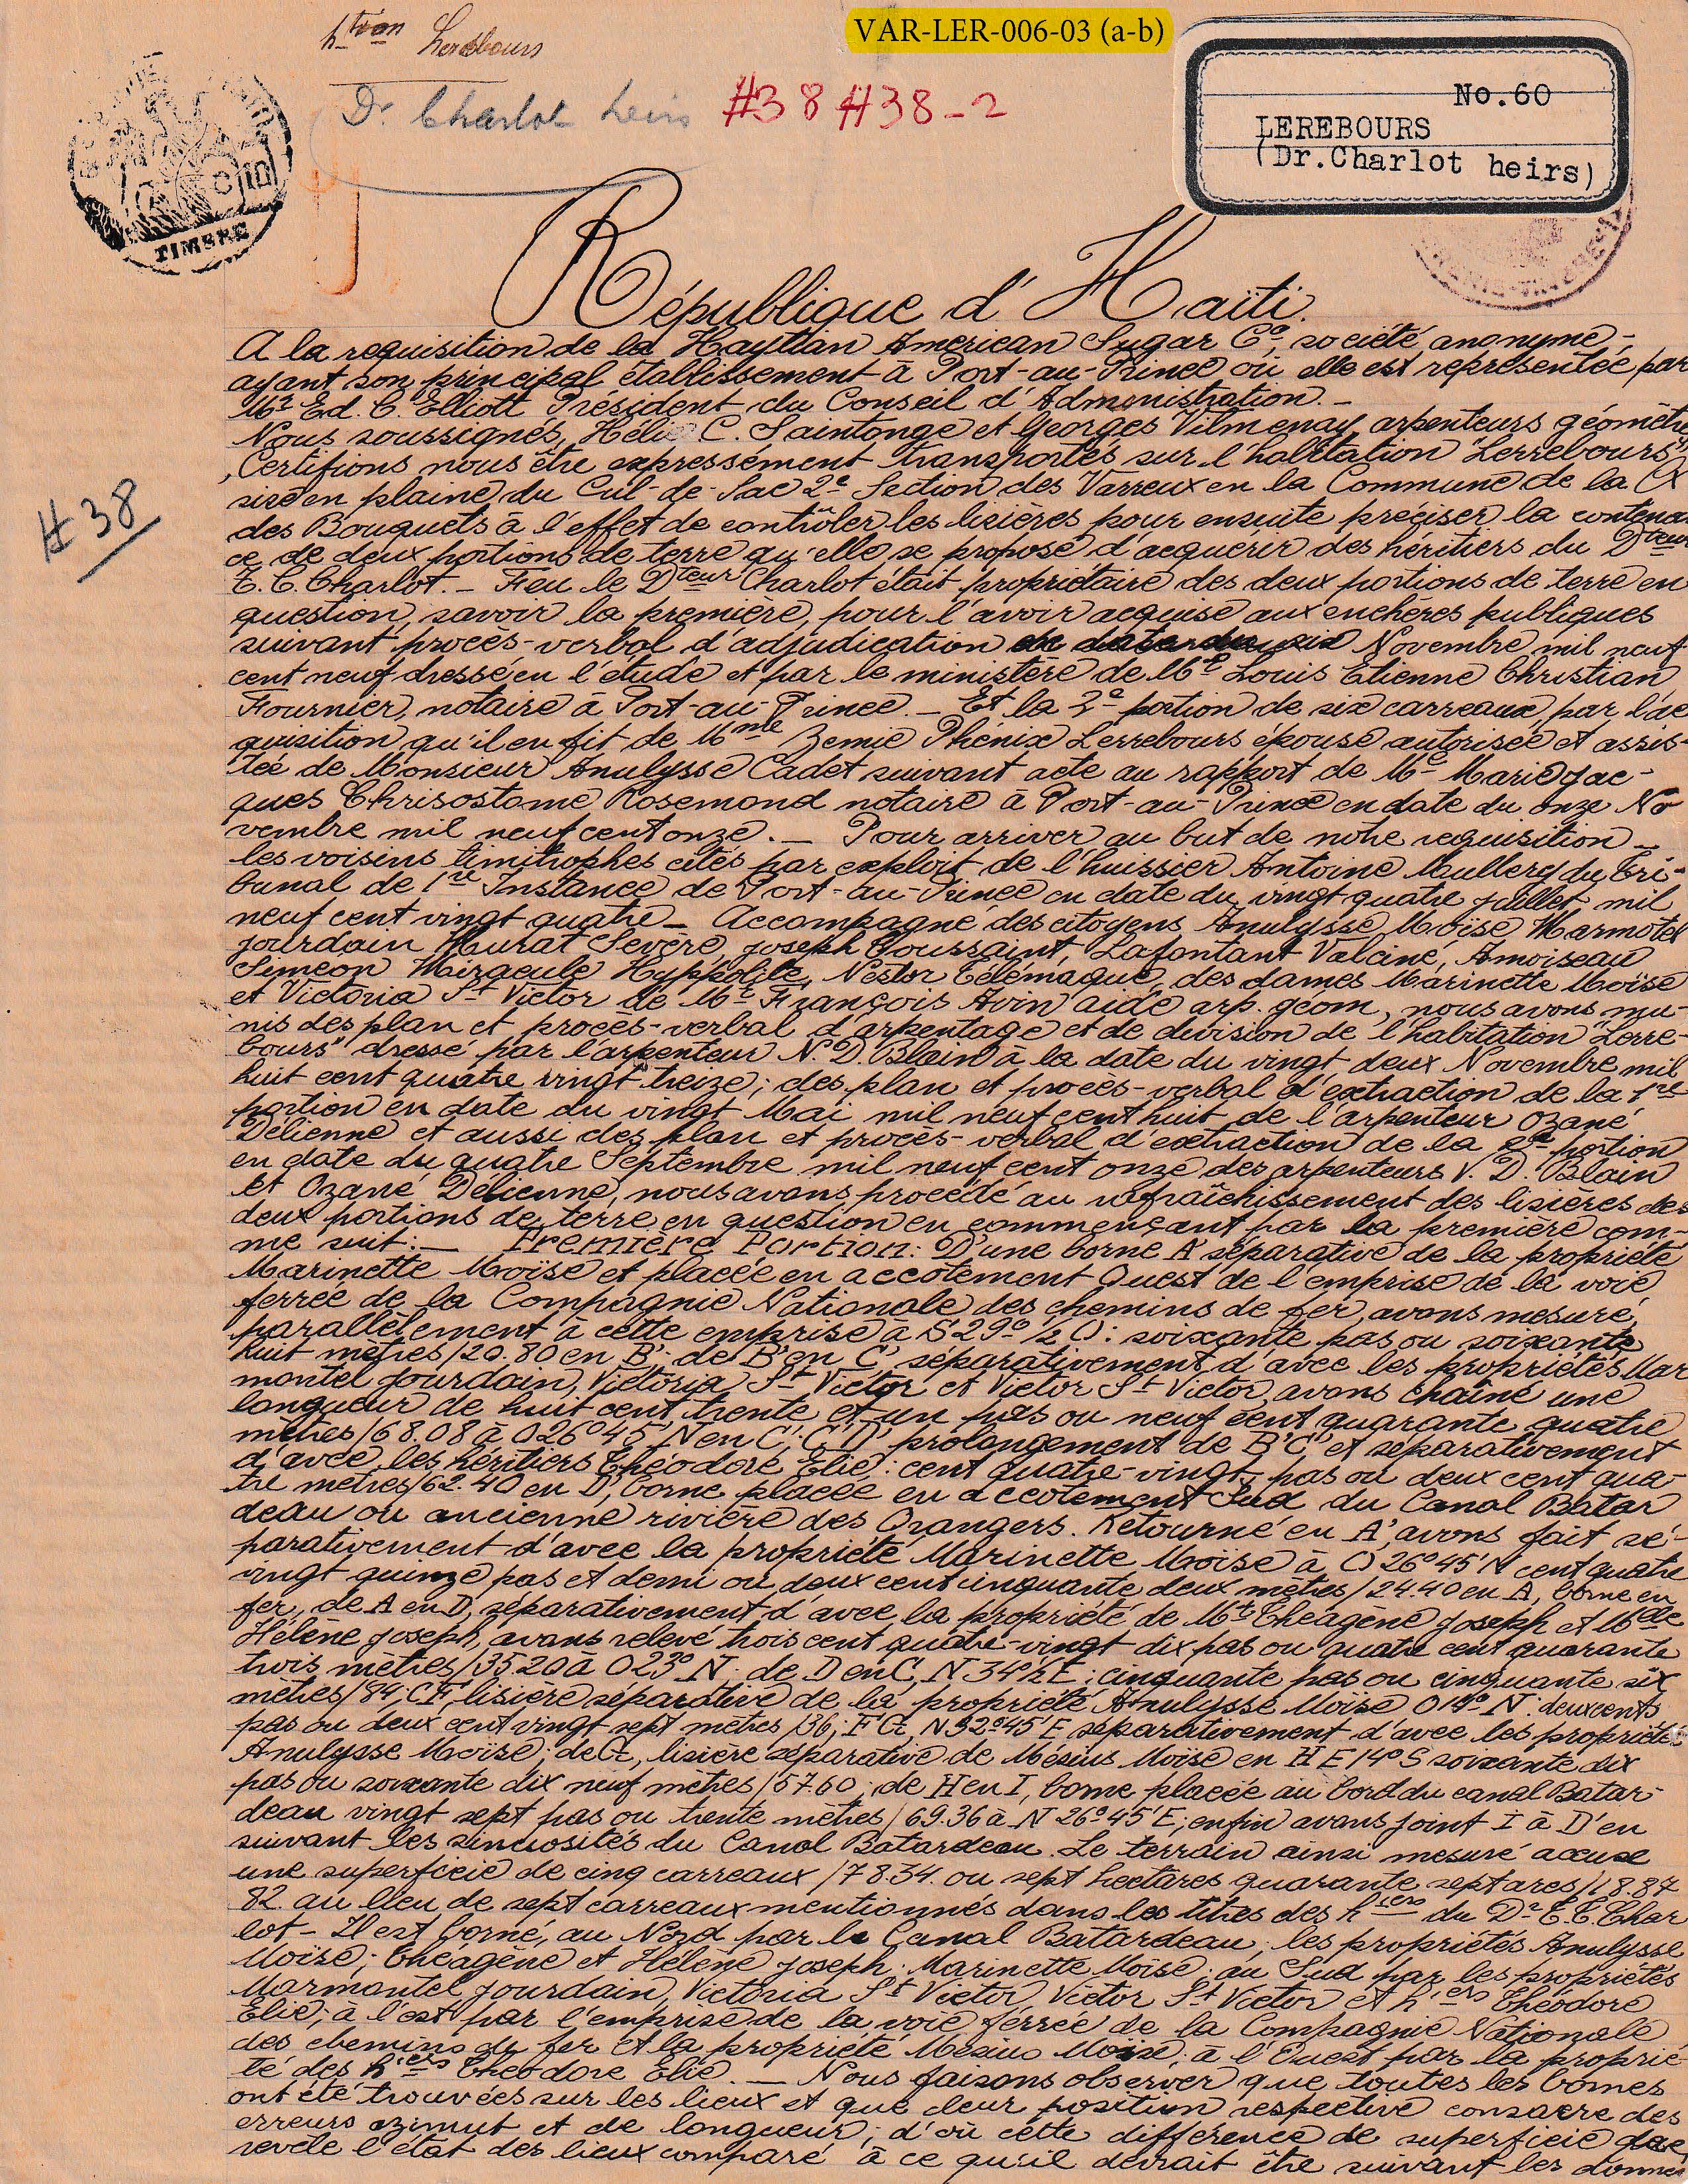 htiers Lerebours
VAR-LER-006-03 (a-b)
Dr Charlot heirs #38 #38-2
No.60
LEREBOURS
(Dr.Charlot heirs)
C 10
TIMBRE
République d'Haïti.
A la requisition de la Haytian American Sugar Co, société anonyme,-
ayant son principal établissement à Port-au-Prince où elle est représentée par
Mr Ed. C. Elliott Président du Conseil d'Administration.-
Nous soussignés, Hélie C. Saintonge et Georges Vilmenay arpenteurs géomètre
Certifions nous être expressément transportés sur l'habitation "Lerrebours",
sise en plaine du Cul-de-Sac 2e Section des Varreux en la Commune de la CX
des Bouquets à l'effet de contrôler les lisières pour ensuite préciser la contenan
ce de deux portions de terre qu'elle se propose d'acquérir des héritiers du Dteur
E. C. Charlot.- Feu le Dteur Charlot était propriétaire des deux portions de terre en
question, savoir la première, pour l'avoir acquise aux enchères publiques
suivant procès-verbal d'adjudication en date du six Novembre mil neuf
cent neuf dressé en l'étude et par le ministère de Me Louis Etienne Christian
Fournier, notaire à Port-au-Prince.- Et la 2e portion de six carreaux, par l'ac
quisition qu'il en fit de Mme Zemie Phénix Lerrebours épouse autorisée et assis-
tée de Monsieur Anulysse Cadet suivant acte au rapport de Me Marie Jac-
ques Chrisostome Rosemond notaire à Port-au-Prince en date du onze No
vembre mil neuf cent onze.- Pour arriver au but de notre requisition-
les voisins limitrophes cités par exploit de l'huissier Antoine Mullery du Tri-
bunal de 1re Instance de Port-au-Prince en date du vingt quatre juillet mil
neuf cent vingt quatre- Accompagné des citoyens Anulysse Moïse Marmotel
jourdain Murat Sevère, joseph Toussaint, Lafontant Valciné, Amoiseau
Siméon Miracule Hyppolite, Néstor Télémaque, des dames Marinette Moïse
et Victoria St Victor de Me François Avin aide arp. géom, nous avons mu-
nis des plan et procès-verbal d'arpentage et de division de l'habitation "Lerre-
bours" dressé par l'arpenteur N. D. Blain à la date du vingt deux Novembre mil
huit cent quatre vingt treize; des plan et procès-verbal d'extraction de la 1re
portion en date du vingt Mai mil neuf cent huit de l'arpenteur Ozané
Délienne et aussi des plan et procès-verbal d'extraction de la 2e portion
en date du quatre Septembre mil neuf cent onze des arpenteurs V. D. Blain
et Ozané Délienne, nous avons procédé au rafraîchissement des lisières des
deux portions de terre en question en commençant par la première com-
me suit:- Première Portion: D'une borne A' séparative de la propriété
Marinette Moïse et placée en accotement Ouest de l'emprise de la voie
ferrée de la Compagnie Nationale des chemins de fer, avons mesuré,
parallèlement à cette emprise à S 29°1/2 O: soixante pas ou soixante
huit mètres/20.80 en B'; de B' en C' séparativement d'avec les propriétés Mar
montel jourdain, Victoria St Victor et Victor St Victor, avons chaîné une
longueur de huit cent trente et un pas ou neuf cent quarante quatre
mètres/68.08 à O26°45' N en C'; C'D' prolongement de B'C' et séparativement
d'avec les héritiers Théodore Elie: cent quatre-vingt pas ou deux cent qua-
tre mètres/62.40 en D', borne placée en accotement Sud du Canal Batar
deau ou ancienne rivière des Orangers. Retourné en A', avons fait sé-
parativement d'avec la propriété Marinette Moïse à O 26°45'N cent quatre
vingt quinze pas et demi ou deux cent cinquante deux mètres/24.40 en A, borne en
fer, de A en D, séparativement d'avec la propriété de Mr Théagène joseph et Mdle
Hélène joseph, avons relevé trois cent quatre-vingt dix pas ou quatre cent quarante
trois mètres/35.20 à O23° N; de D en C, N 34°1/2 E; cinquante pas ou cinquante six
mètres/84; CF, lisière séparative de la propriété Anulysse Moïse O 19° N: deux cents
pas ou deux cent vingt sept mètres/36; FG, N 32°45' E séparativement d'avec les propriétés
Anulysse Moïse; de G, lisière séparative de Mésius Moïse en H E 14° S soixante dix
pas ou soixante dix neuf mètres/57.60; de H en I, borne placée au bord du canal Batar-
deau vingt sept pas ou trente mètres/69.36 à N 26°45' E; enfin avons joint I à D' en
suivant les sinuosités du Canal Batardeau. Le terrain ainsi mesuré accuse
une superficie de cinq carreaux/78.34. ou sept hectares quarante sept ares/18.87
82. au lieu de sept carreaux mentionnés dans les titres des hiers du Dr E. C. Char
lot- Il est borné, au Nord par le Canal Batardeau, les propriétés Anulysse
Moïse; Théagène et Hélène joseph; Marinette Moïse; au Sud par les propriétés
Marmontel jourdain, Victoria St Victor, Victor St Victor et hiers Théodore
Elie; à l'est par l'emprise de la voie ferrée de la Compagnie Nationale
des chemins de fer et la propriété Mésius Moïse; à l'Ouest par la proprié-
té des hiers Théodore Elie.- Nous faisons observer que toutes les bornes
ont été trouvées sur les lieux et que leur position respective consacre des
erreurs azimut et de longueur; d'où cette différence de superficie que
revèle l'état des lieux comparé à ce qu'il devrait être suivant les donnes
#38